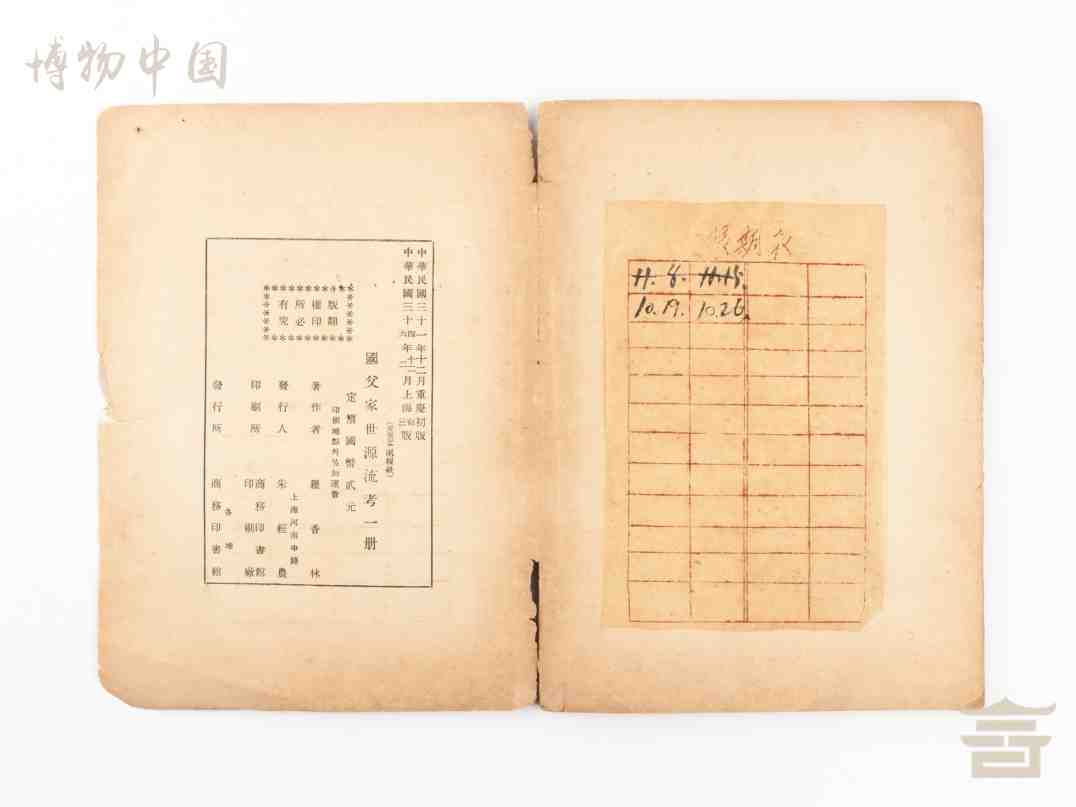 博物中国
中華民國三十一年十二月重慶初版
中華民國三十四六年十一二月上海初三版
國父家世源流考一册
定價國幣貳元
印刷地點外另加運費
著作者 羅香林
上海河南中路
發行人 朱經農
印刷所 商務印書館印刷廠
發行所 各地商務印書館
版權所有
翻印必究
期表
11. 8. 11.15.
10.19. 10.26.